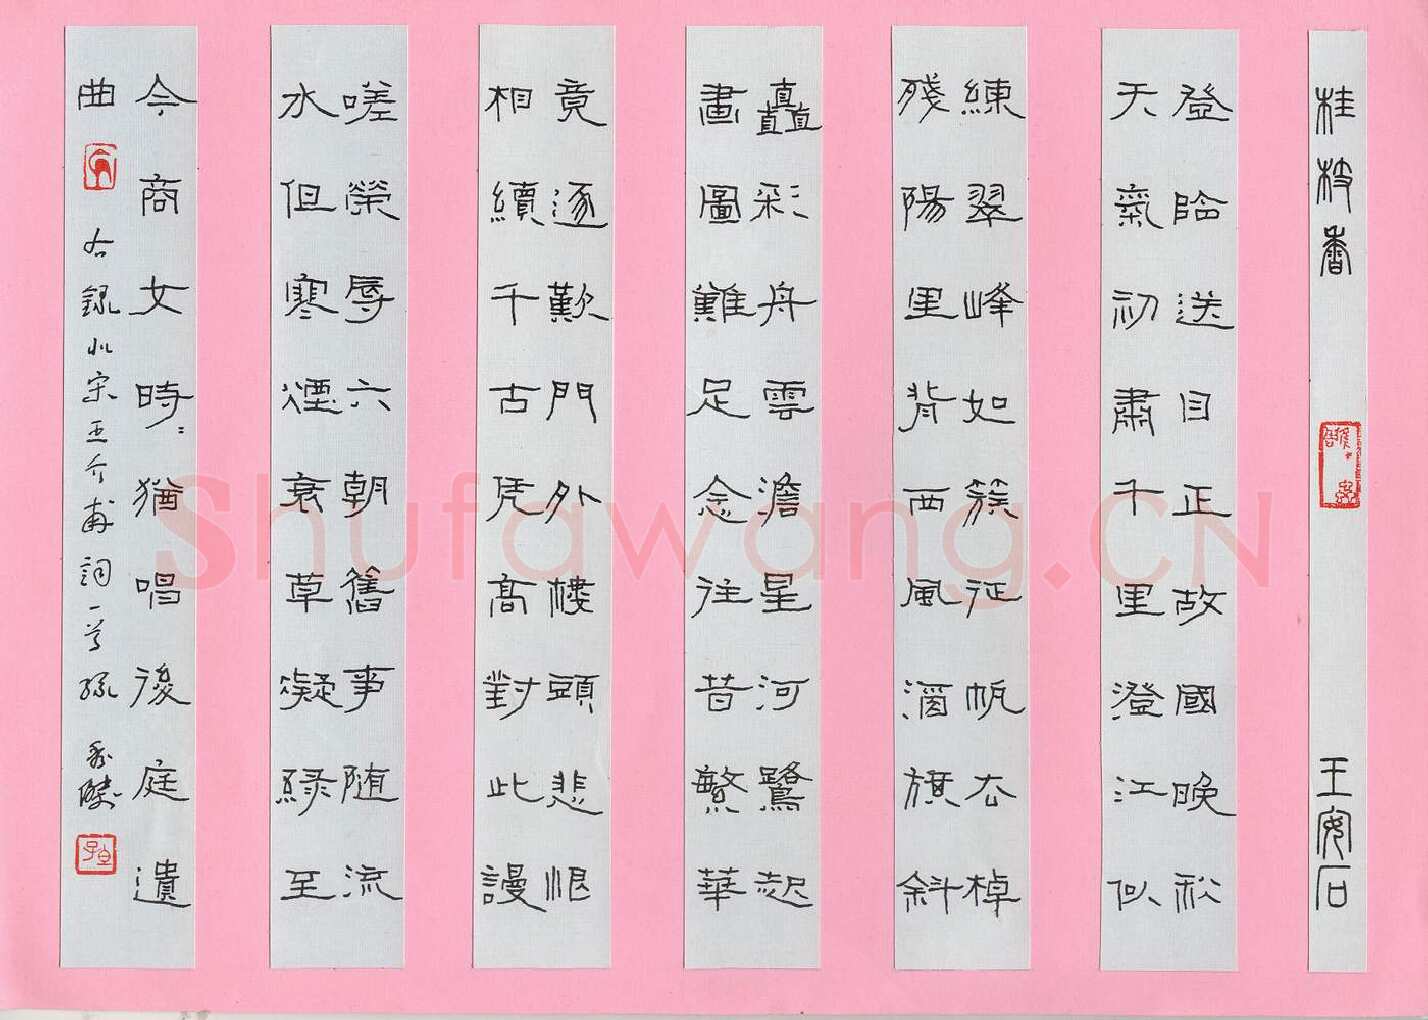 桂枝香 王安石
登臨送目正故國晚秋
天氣初肅千里澄江似
練翠峰如簇征帆去棹
殘陽里背西風酒旗斜
矗彩舟雲澹星河鷺起
畫圖難足念往昔繁華
竟逐歎門外樓頭悲恨
相續千古凭高對此謾
嗟榮辱六朝舊事随流
水但寒煙衰草凝緑至
今商女時〻猶唱後庭遺
曲 右録北宋王介甫詞一首
Shufawang.CN